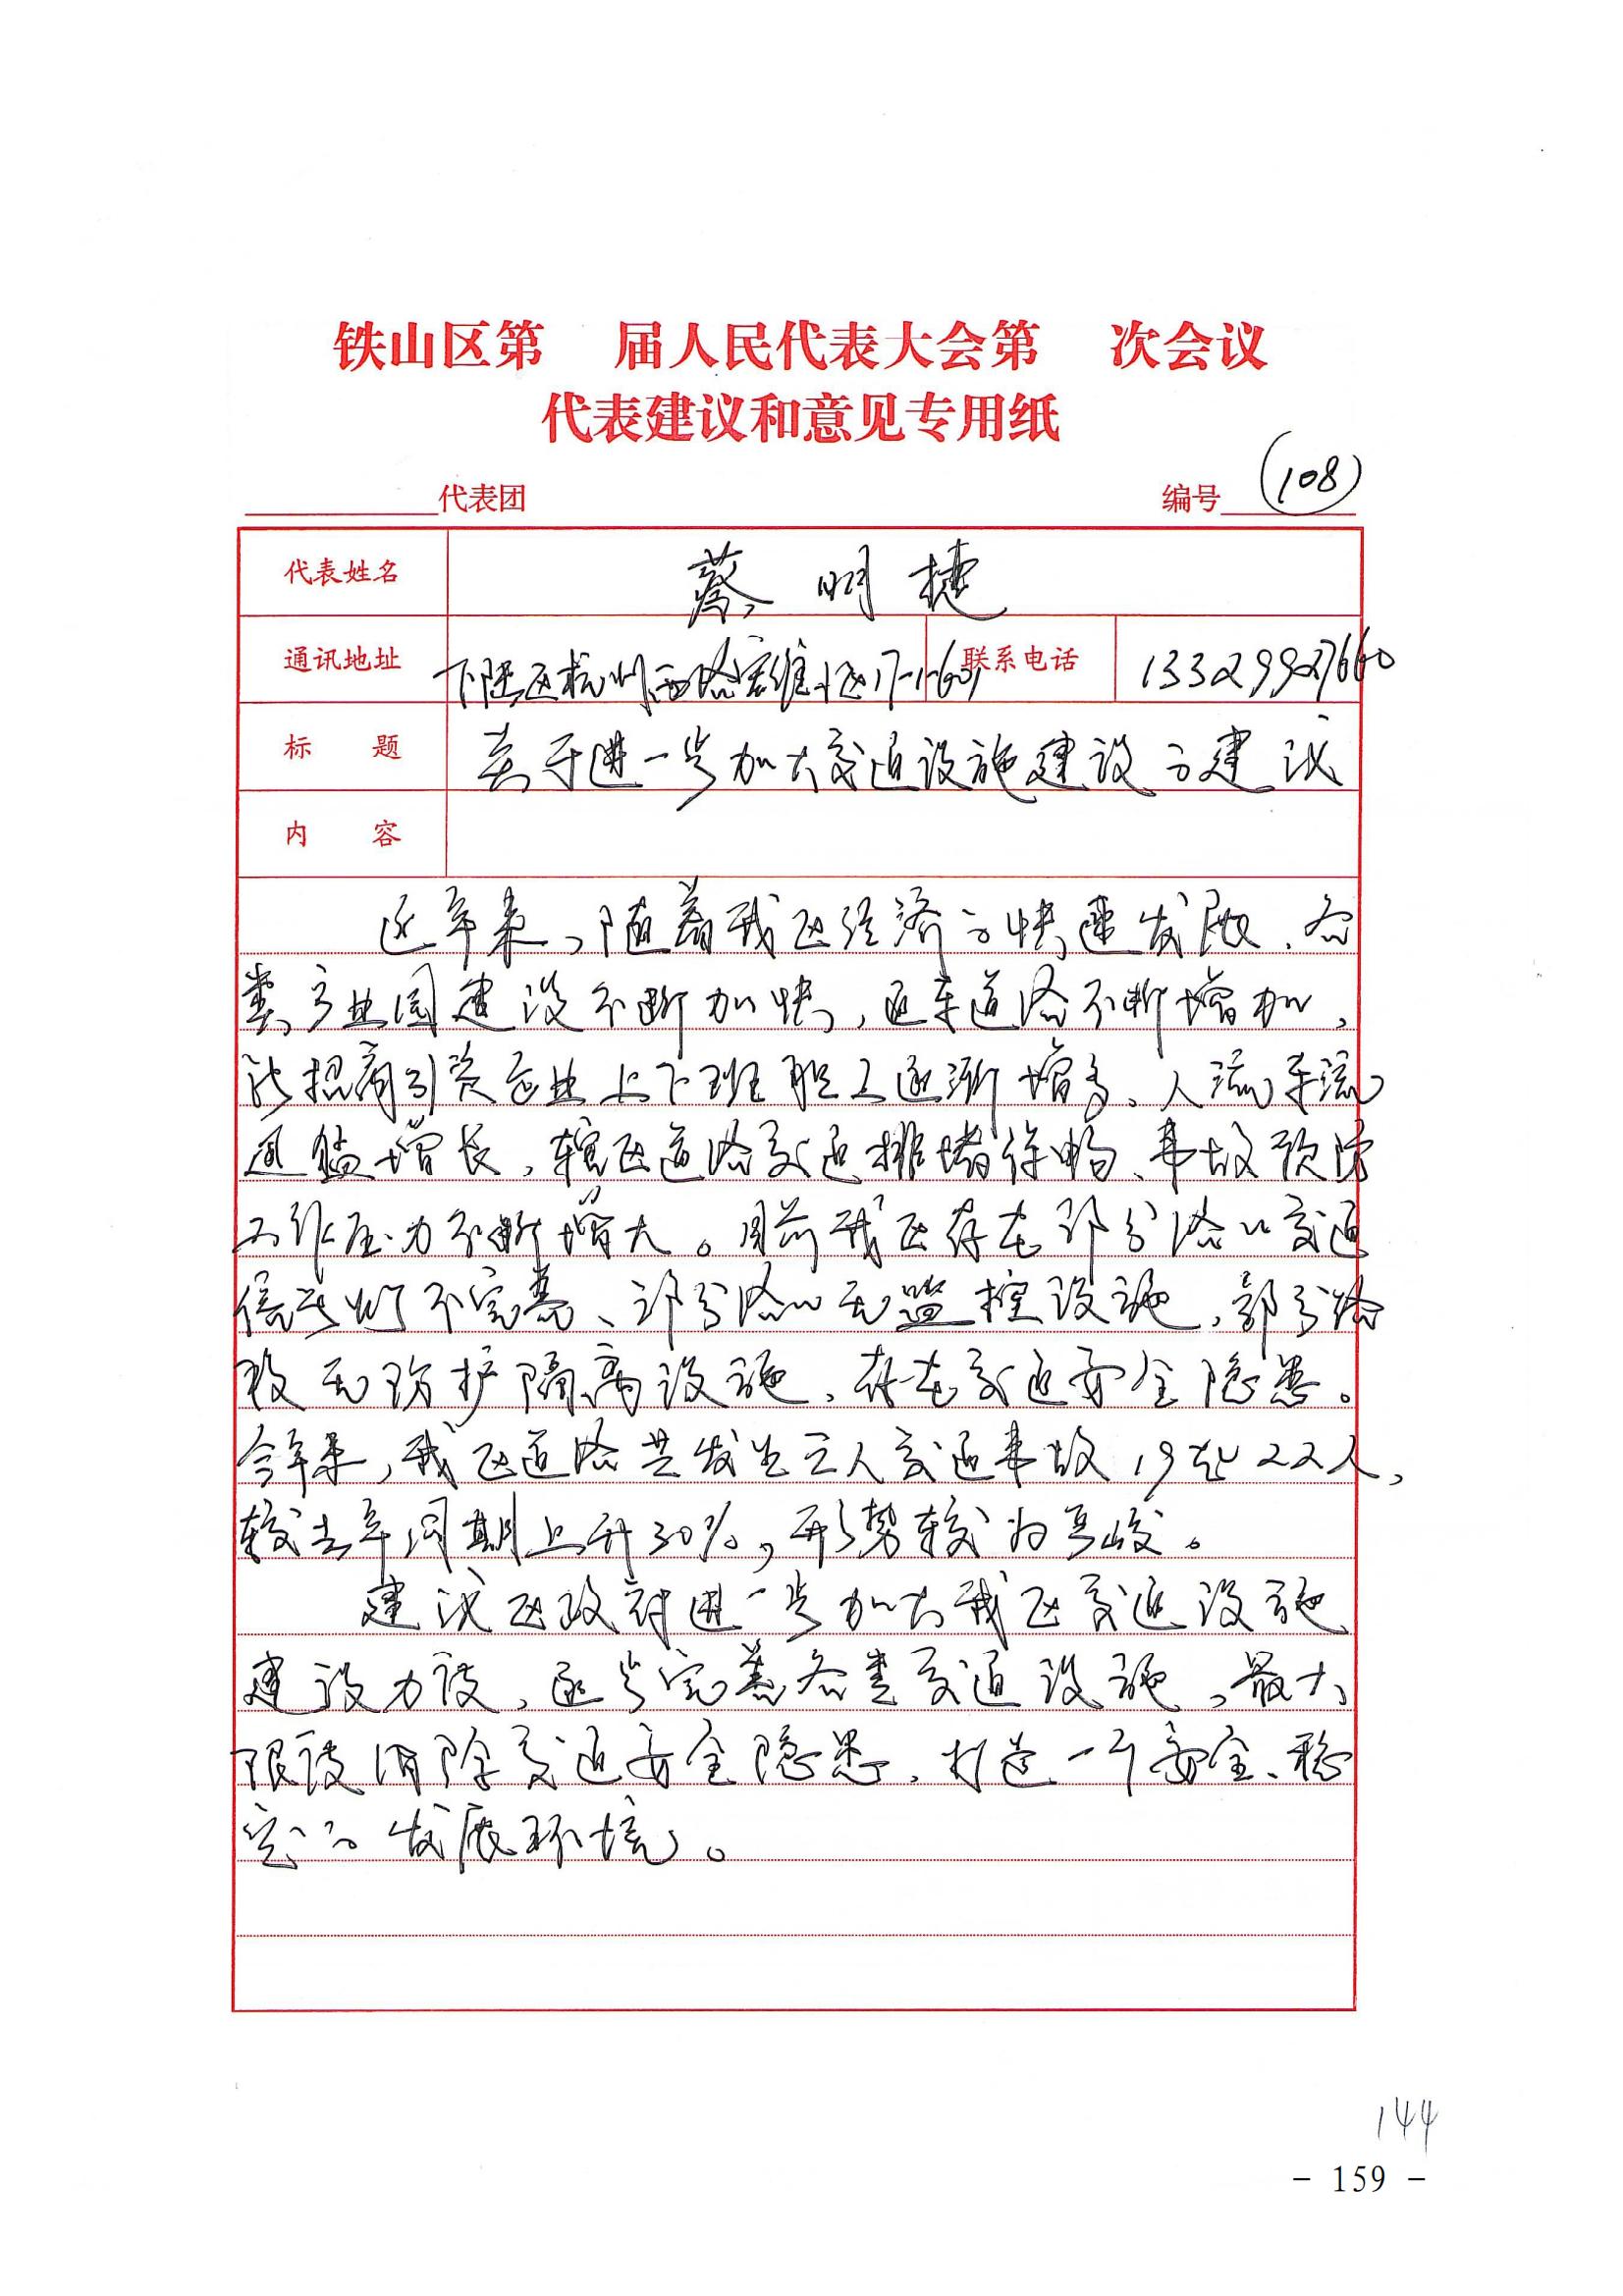 铁山区第 届人民代表大会第 次会议
代表建议和意见专用纸
代表团 编号 (108)
代表姓名 蔡明捷
通讯地址 下陆区杭州西路宏维小区17-1-601 联系电话 13329927660
标 题 关于进一步加大交通设施建设的建议
内 容
近年来,随着我区经济的快速发展,各
类产业园建设不断加快,通车道路不断增加,
招商引资企业上下班职工逐渐增多、人流车流
逐增长,辖区道路交通排堵保畅、事故预防
工作压力不断增大。目前我区存在部分路口交通
信号灯不完善、部分路口无监控设施,部分路
段无防护隔离设施,存在交通安全隐患。
今年来,我区道路共发生亡人交通事故19起22人,
较去年同期上升30%,形势较为严峻。
建议区政府进一步加大我区交通设施
建设力度,逐步完善各类交通设施,最大
限度消除交通安全隐患,打造一个安全、稳
定的发展环境。
144
- 159 -